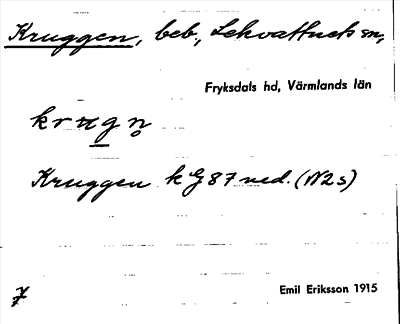 Kruggen, beb., Lekvattnets sn,
Fryksdals hd, Värmlands län
Kruggen k G87 ned. (N2s)
Emil Eriksson 1915